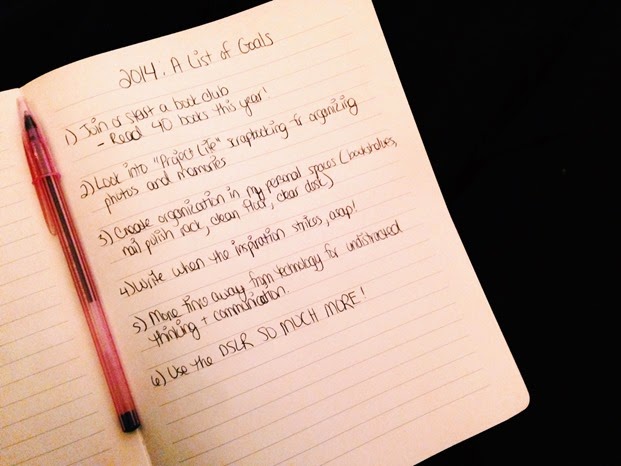 2014: A List of Goals
1) Join or start a book club
- Read 40 books this year!
2) Look into "Project Life" scrapbooking for organizing
photos and memories
3) Create organization in my personal spaces (bookshelves,
nail polish rack, clean floor, clear desk)
4) Write when the inspiration strikes, asap!
5) More time away from technology for undistracted
thinking + communication.
6) Use the DSLR SO MUCH MORE!